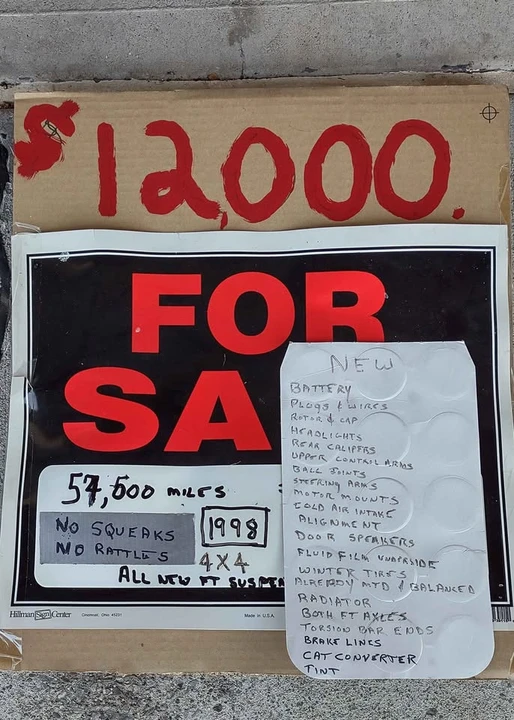 $12,000.
FOR
SA
57,600 MILES
NO SQUEAKS
NO RATTLES
1998
4X4
ALL NEW FT SUSPEN
Hillman Sign Center
Cincinnati, Ohio 45231
Made in U.S.A.
NEW
BATTERY
PLUGS & WIRES
ROTOR & CAP
HEADLIGHTS
REAR CALIPERS
UPPER CONTAIL ARMS
BALL JOINTS
STEERING ARMS
MOTOR MOUNTS
COLD AIR INTAKE
ALIGNMENT
DOOR SPEAKERS
FLUID FILM UNDERSIDE
WINTER TIRES
ALREADY MTD & BALANCED
RADIATOR
BOTH FT AXLES
TORSION BAR ENDS
BRAKE LINES
CAT CONVERTER
TINT